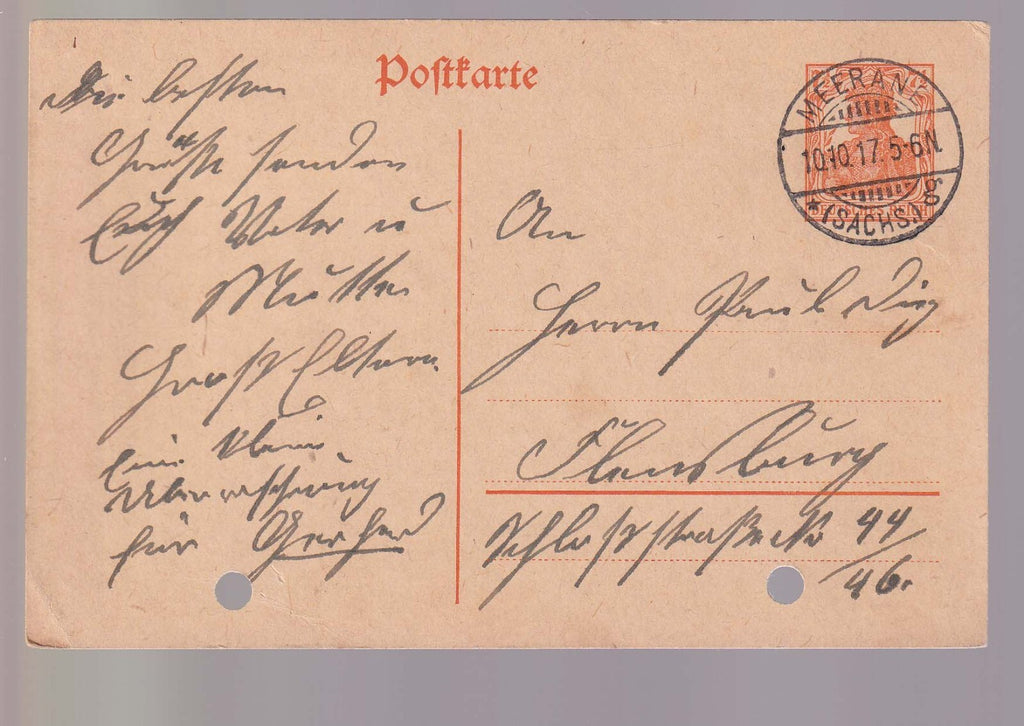 Postkarte
MEERANE
10.10.17. 5-6N.
* (SACHS.) g
Die besten
Grüße senden
Euch Vater u
Mutter
Groß Eltern.
Eine kleine
Überraschung
für Gerhard
An
Herrn Paul
Flensburg
Schloßstraße 44/
46.